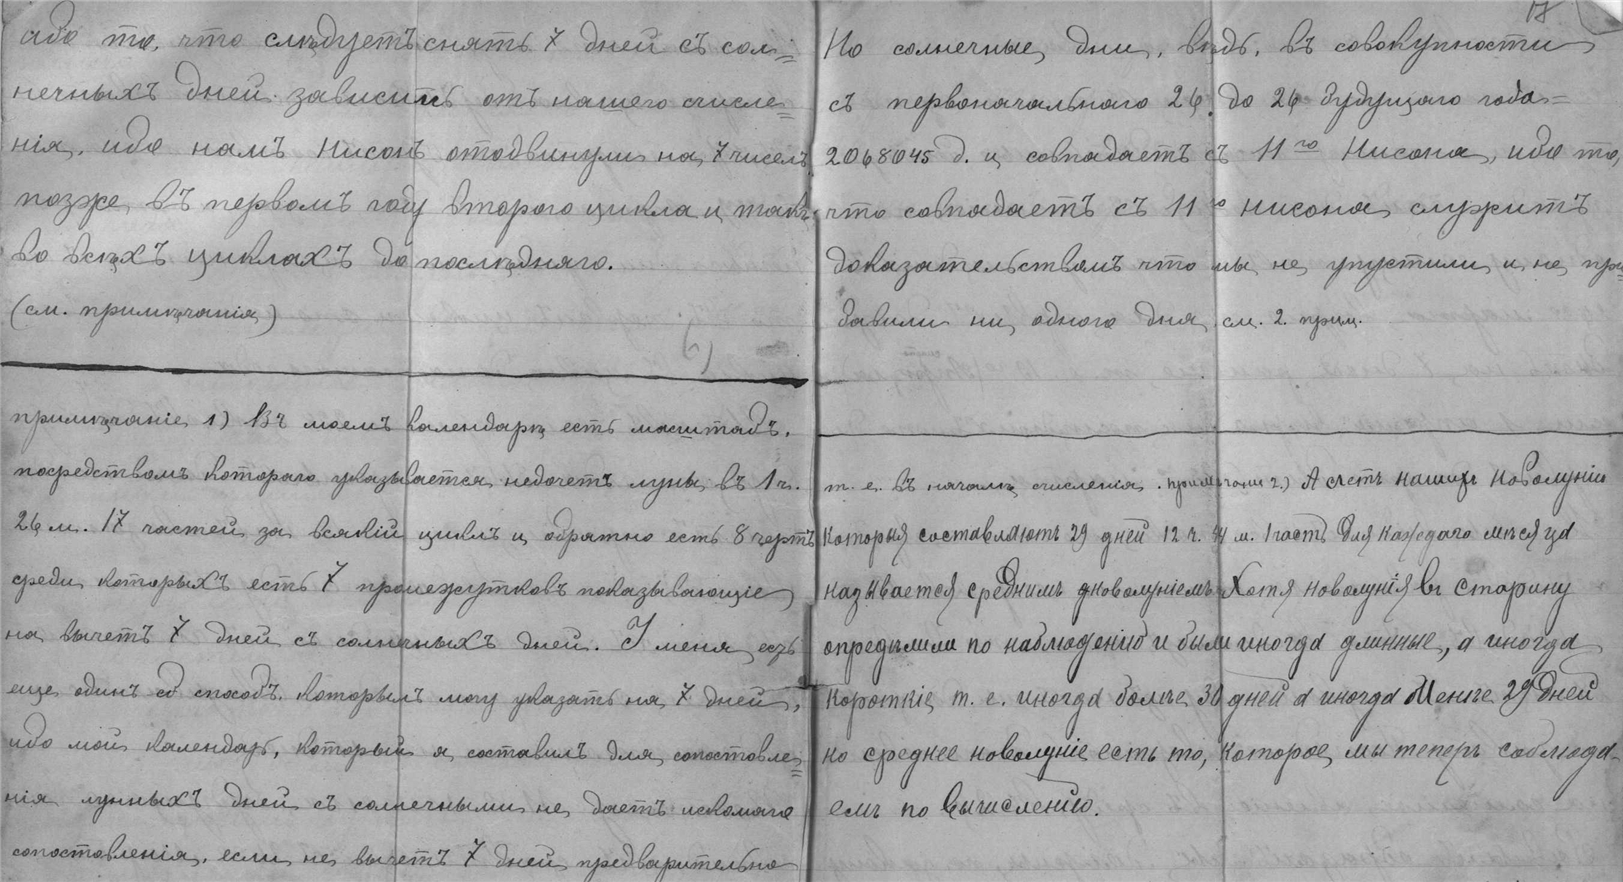 ибо то, что слѣдуетъ снять 7 дней съ сол=
нечныхъ дней зависитъ отъ нашего счисле=
нія, ибо намъ Нисонъ отодвинули на 7 чиселъ
позже въ первомъ году второго цикла и такъ
во всѣхъ циклахъ до послѣдняго.
(см. примѣчанія)
примѣчаніе 1) Въ моемъ календарѣ есть масштабъ,
посредствомъ котораго указывается недочетъ луны въ 1 ч.
26 м. 17 частей за всякій циклъ и обратно есть 8 чертъ
среди которыхъ есть 7 промежутковъ показывающіе
на вычетъ 7 дней съ солнечныхъ дней. У меня есть
еще одинъ способъ которымъ могу указать на 7 дней,
ибо мой календарь, который я составилъ для сопоставле=
нія лунныхъ дней съ солнечными не даетъ искомаго
сопоставленія, если не вычетъ 7 дней предварительно
18
Но солнечные дни, вѣдь, въ совокупности
съ первоначальнаго 26 до 26 будущаго года=
2068045 д. и совпадаетъ съ 11го Нисона, ибо то,
что совпадаетъ съ 11го Нисона служитъ
доказательствомъ что мы не упустили и не при=
бавили ни одного дня см. 2. прим.
т. е. въ началѣ счисленія. примѣчаніе 2.) А счетъ нашихъ новолуній
которыя составляютъ 29 дней 12 ч. 44 м. 1 часть для каждаго мѣсяца
называется среднимъ новолуніемъ Хотя новолунія въ старину
опредѣлили по наблюденію и были иногда длинные, а иногда
короткіе т. е. иногда болѣе 30 дней а иногда менѣе 29 дней
но среднее новолуніе есть то, которое мы теперь соблюда-
емъ по вычисленію.